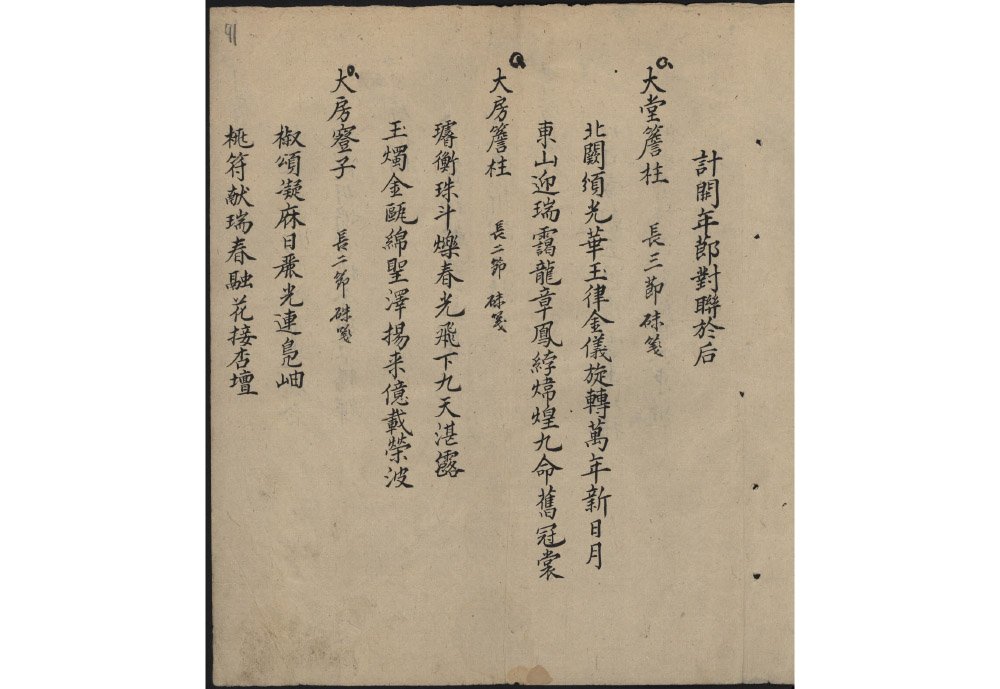 計開年節對聯於后
大堂簷柱 長三節 硃箋
北闕須光華玉律金儀旋轉萬年新日月
東山迎瑞靄龍章鳳綍煒煌九命舊冠裳
大房簷柱 長二節 硃箋
璿衡珠斗爍春光飛下九天湛露
玉燭金甌綿聖澤揚来億載榮波
大房 子 長二節 硃箋
椒頌凝庥日麗光連鳧岫
桃符献瑞春融花接杏壇
91